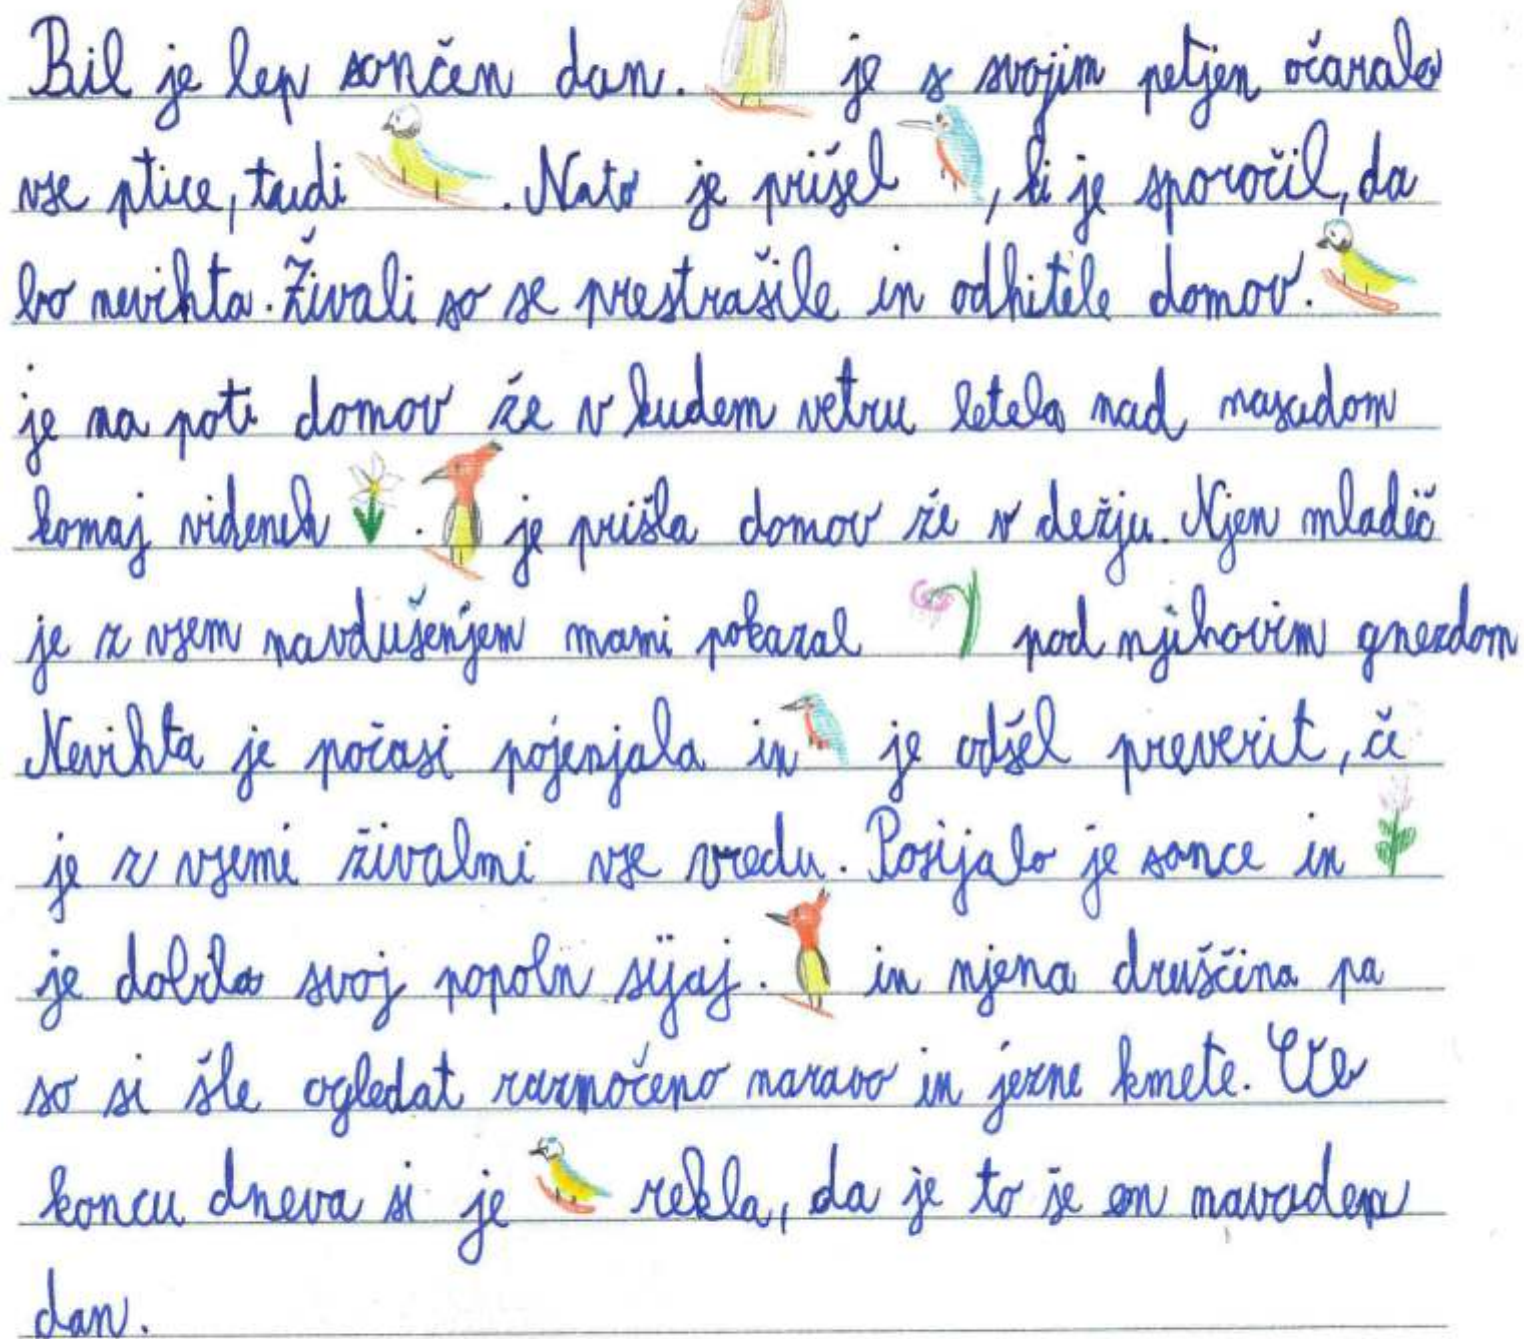 Bil je lep sončen dan. je s svojim petjen očaralo
vse ptice, tudi . Nato je prišel , ki je sporočil, da
bo nevihta. Živali so se prestrašile in odhitele domov.
je na poti domov že v hudem vetru letela nad nasadom
komaj videneh . je prišla domov že v dežju. Njen mladič
je z vsem navdušenjem mami pokazal pod njihovim gnezdom
Nevihta je počasi pojenjala in je odšel preverit, če
je z vsemi živalmi vse vredu. Posijalo je sonce in
je dobila svoj popoln sijaj. in njena druščina pa
so si šle ogledat razmočeno naravo in jezne kmete.
koncu dneva si je rekla, da je to še en navaden
dan.